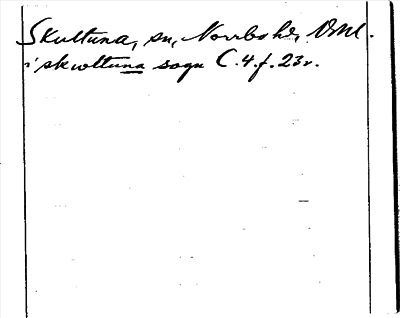 Skultuna, sn, Norrbo hd, Vstml.
i skwltuna sogn C.4.f.23v.